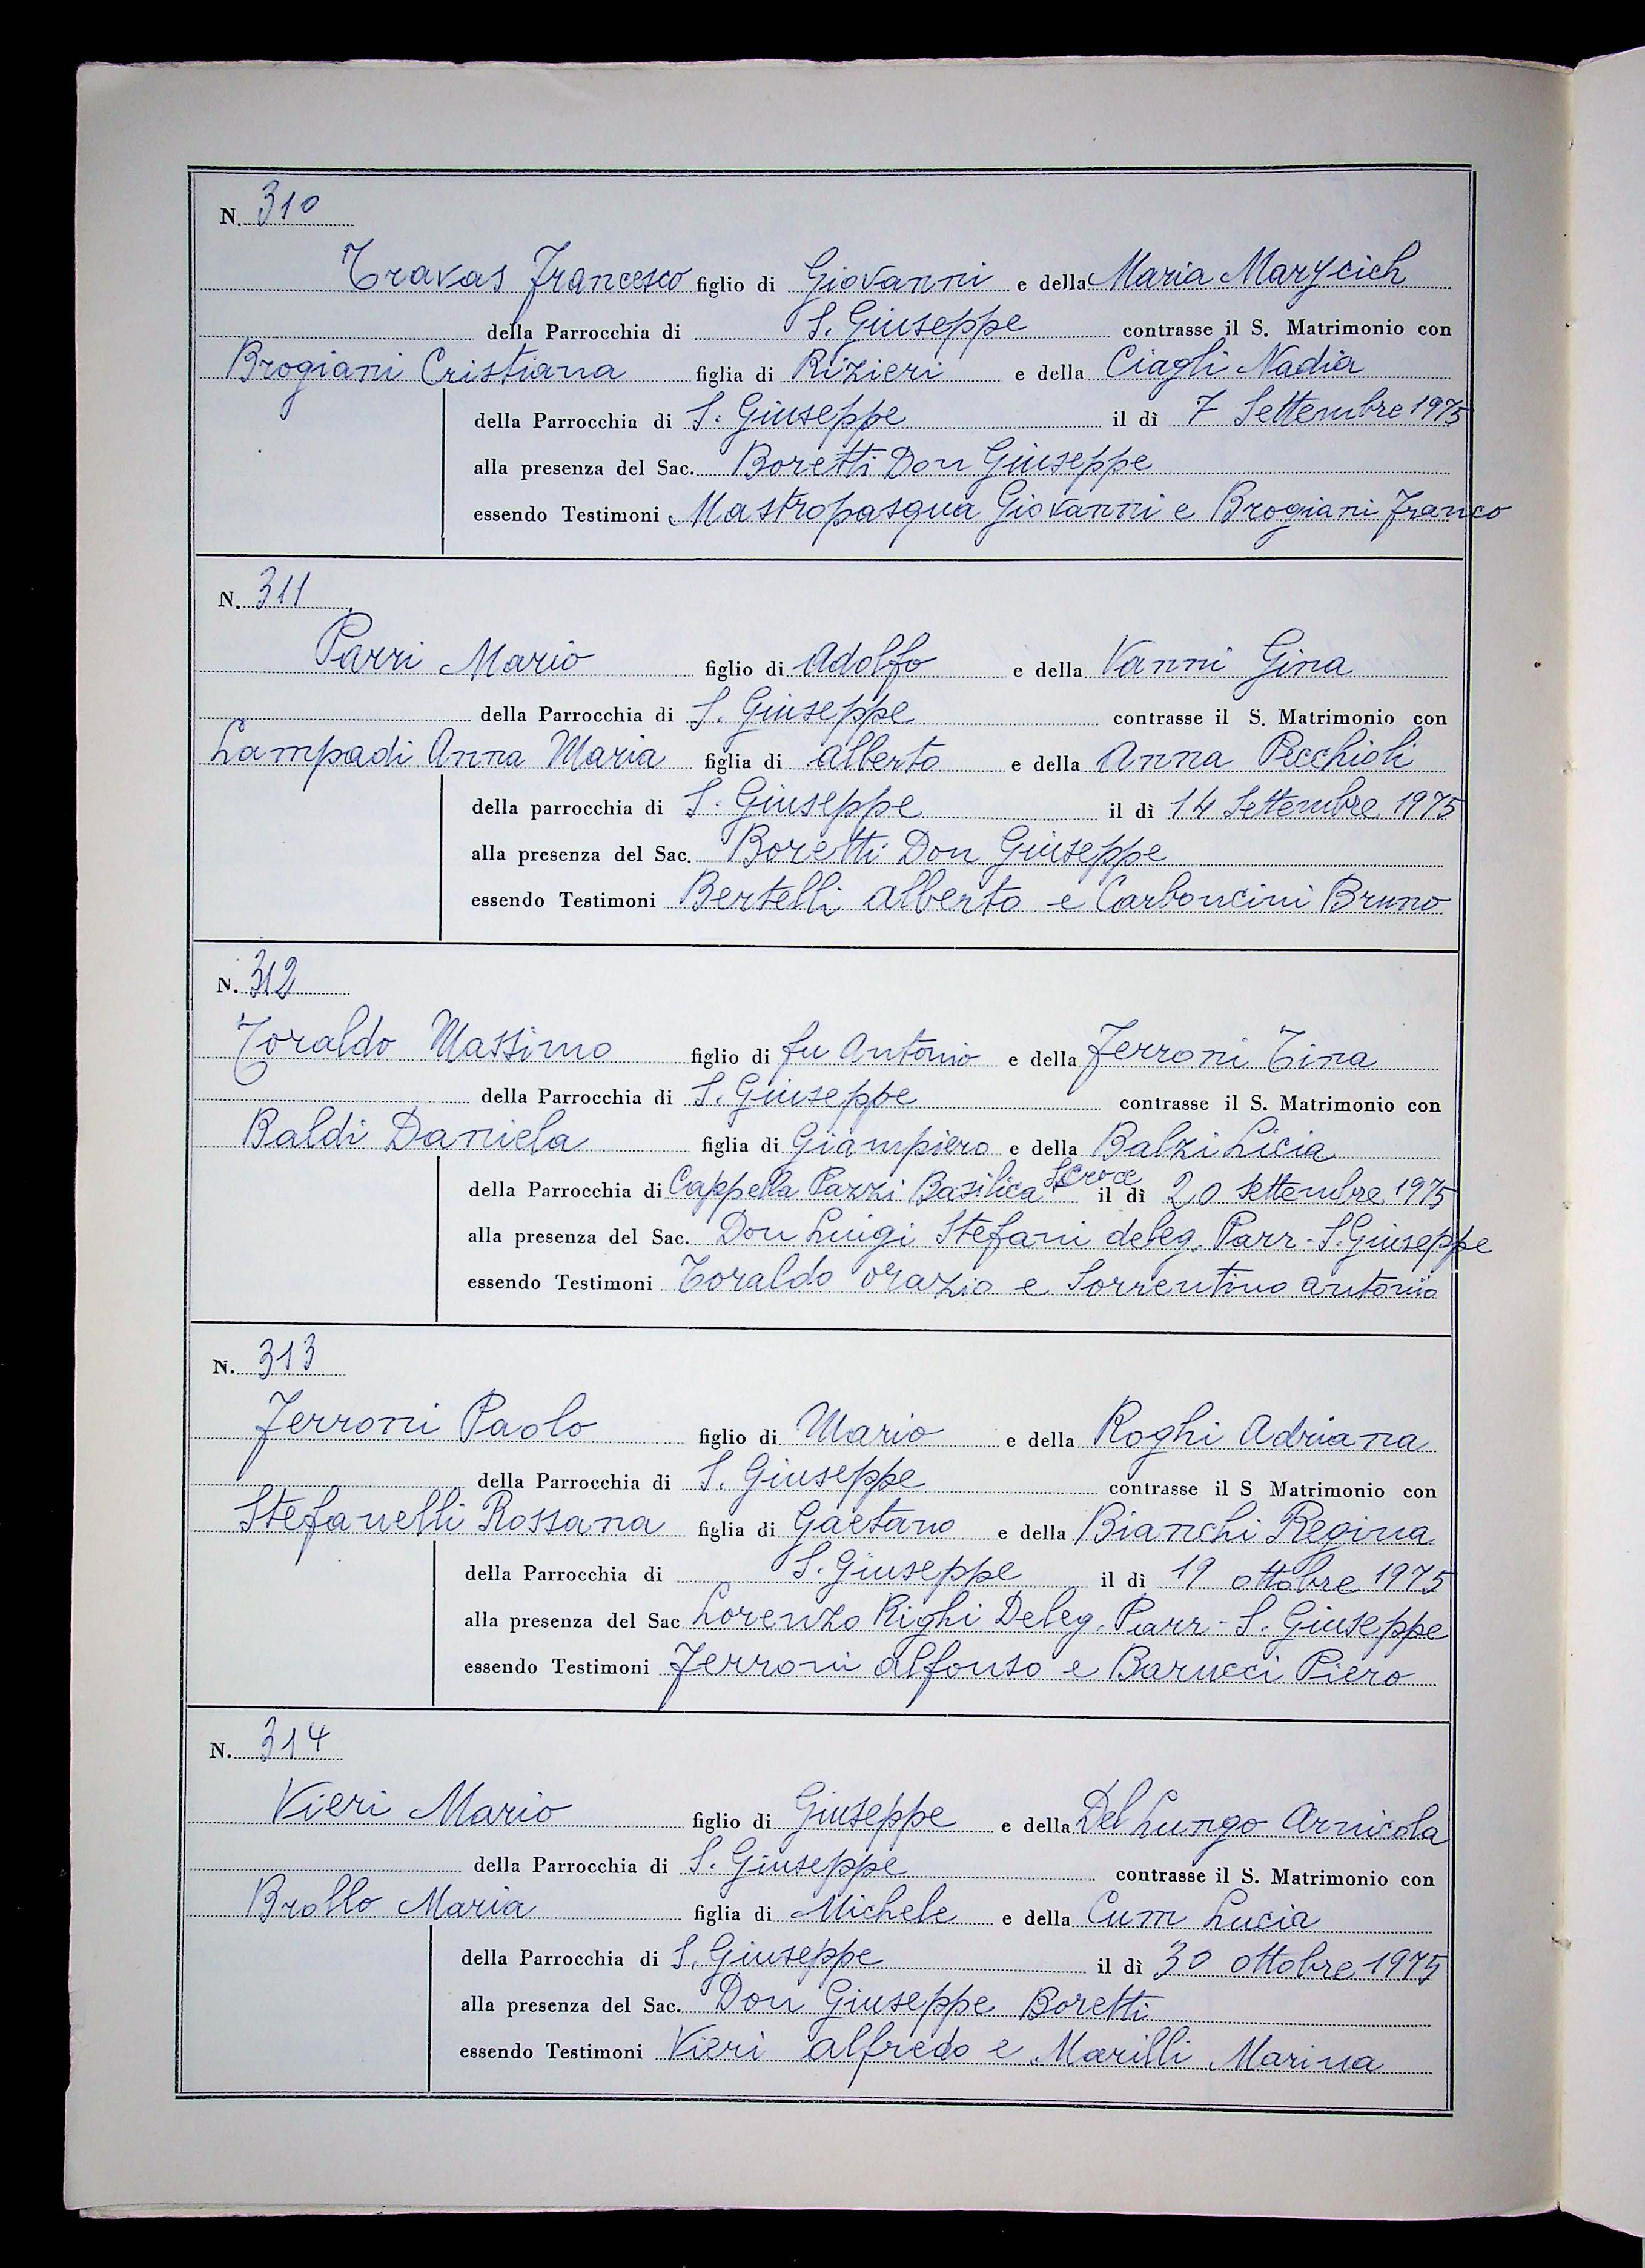 N. 310
Travas Francesco figlio di Giovanni e della Maria Marycich
della Parrocchia di S. Giuseppe contrasse il S. Matrimonio con
Brogiani Cristiana figlia di Rizieri e della Ciagli Nadia
della Parrocchia di S. Giuseppe il dì 7 Settembre 1975
alla presenza del Sac. Boretti Don Giuseppe
essendo Testimoni Mastropasqua Giovanni e Brogiani Franco
N. 311
Parri Mario figlio di Adolfo e della Vanni Gina
della Parrocchia di S. Giuseppe contrasse il S. Matrimonio con
Lampadi Anna Maria figlia di Alberto e della Anna Pecchioli
della parrocchia di S. Giuseppe il dì 14 Settembre 1975
alla presenza del Sac. Boretti Don Giuseppe
essendo Testimoni Bertelli Alberto e Carboncini Bruno
N. 312
Toraldo Massimo figlio di fu Antonio e della Ferroni Tina
della Parrocchia di S. Giuseppe contrasse il S. Matrimonio con
Baldi Daniela figlia di Giampiero e della Balzi Licia
della Parrocchia di Cappella Pazzi Basilica S. Croce il dì 20 Settembre 1975
alla presenza del Sac. Don Luigi Stefani deleg. Parr. S. Giuseppe
essendo Testimoni Toraldo Orazio e Sorrentino Antonio
N. 313
Ferroni Paolo figlio di Mario e della Roghi Adriana
della Parrocchia di S. Giuseppe contrasse il S Matrimonio con
Stefanelli Rossana figlia di Gaetano e della Bianchi Regina
della Parrocchia di S. Giuseppe il dì 19 ottobre 1975
alla presenza del Sac Lorenzo Righi Deleg. Parr. S. Giuseppe
essendo Testimoni Ferroni Alfonso e Barucci Piero
N. 314
Vieri Mario figlio di Giuseppe e della Del Lungo Arnicola
della Parrocchia di S. Giuseppe contrasse il S. Matrimonio con
Brollo Maria figlia di Michele e della Cum Lucia
della Parrocchia di S. Giuseppe il dì 30 ottobre 1975
alla presenza del Sac. Don Giuseppe Boretti
essendo Testimoni Vieri Alfredo e Marilli Marina